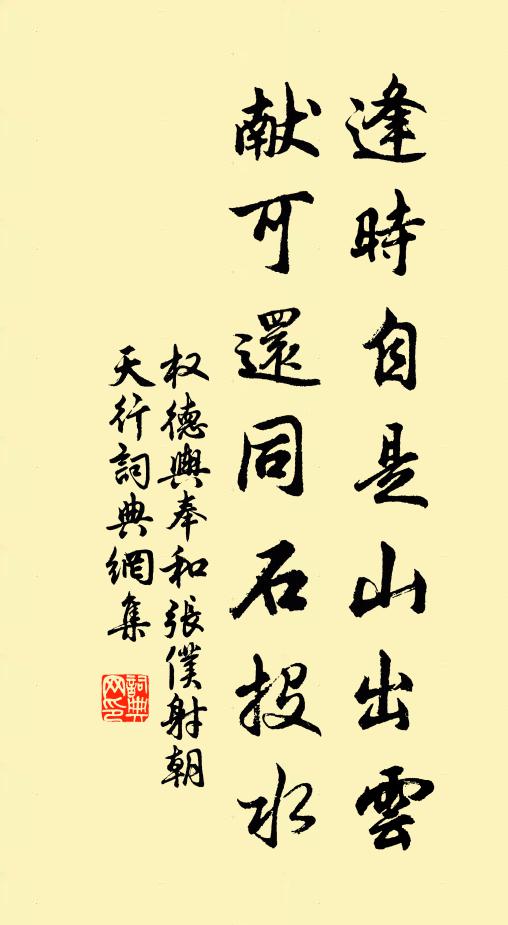 逢時自是山出雲
献可還同石投水
权德輿奉和張僕射朝
天行詞典網集
詞典网印